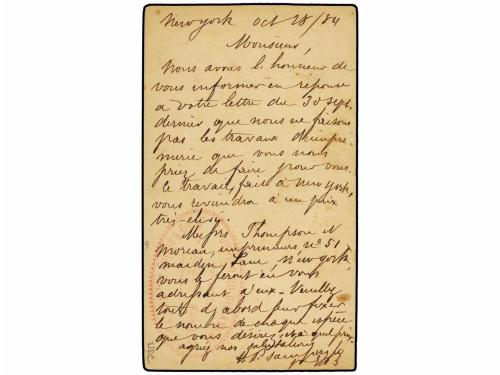 New York Oct 28/84
Monsieur,
Nous avons l'honneur de
vous informer en réponse
a votre lettre du 30 sept.
dernier que nous ne faisons
pas les travaux d'impri-
merie que vous nous
priez de faire pour vous.
le travail, fait à New York,
vous reviendra à un prix
très-élevé.
Messrs Thompson &
Moreau, imprimeurs no 51
maiden Lane New York,
vous le feront en vous
adressant à eux. Veuillez
tout d'abord pour fixer
le nombre de chaque espèce
que vous désirez, et à quel prix.
agréez nos salutations